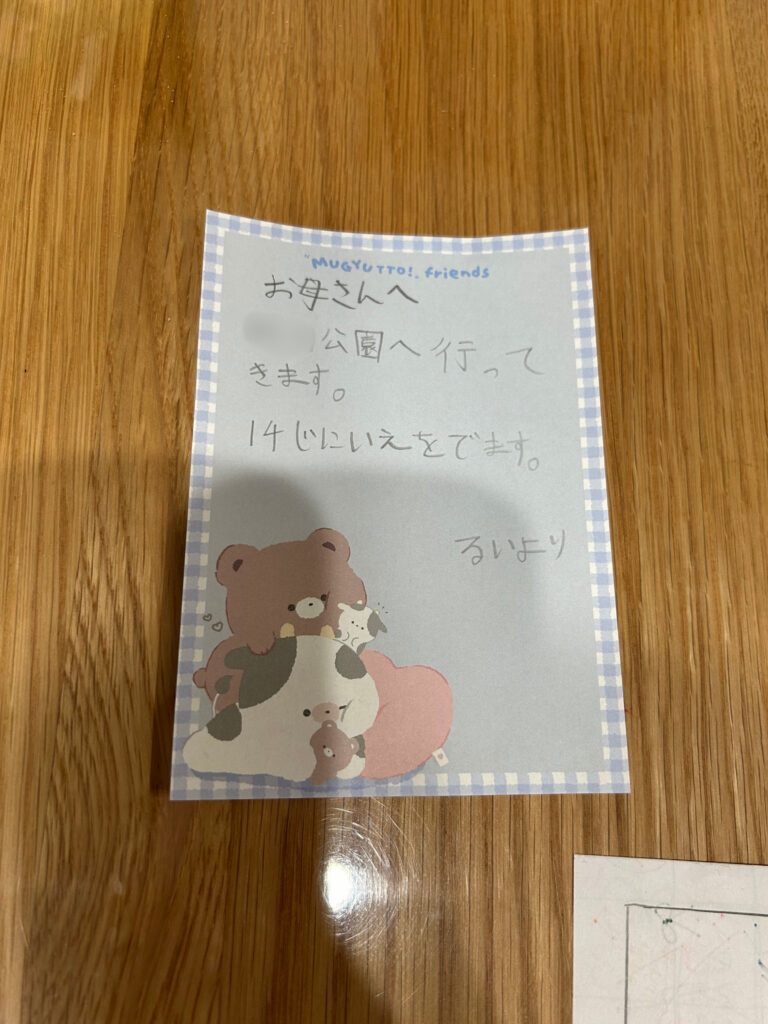 "MUGYUTTO!" friends
お母さんへ
公園へ行って
きます。
14じにいえをでます。
るいより